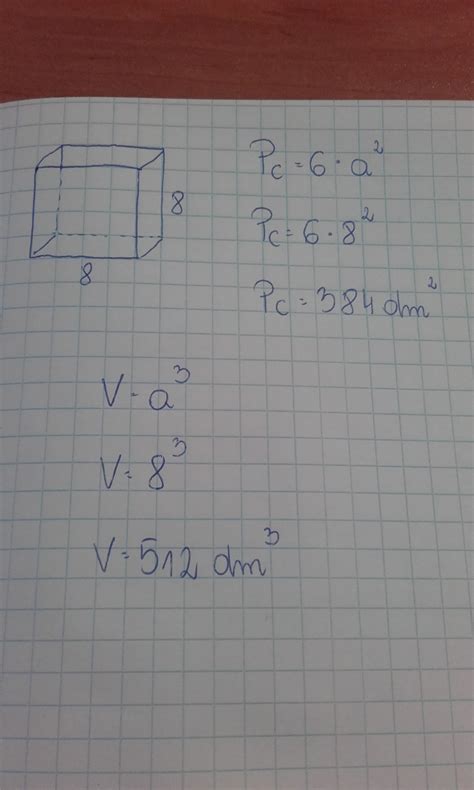 8
8
Pc = 6 · a²
Pc = 6 · 8²
Pc = 384 dm²
V = a³
V = 8³
V = 512 dm³